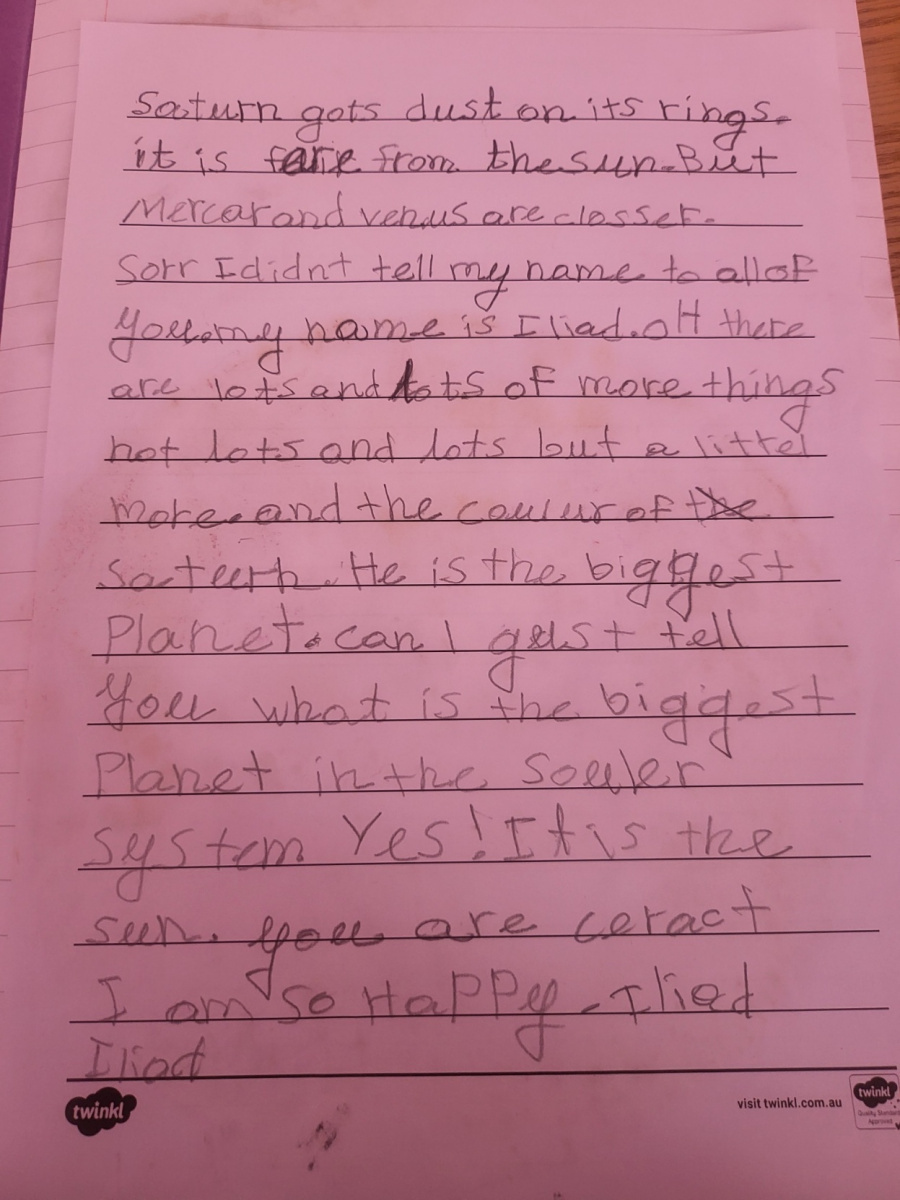 Saturn gots dust on its rings.
it is fare from the sun. But
Mercar and venus are closser.
Sorr I didnt tell my name to all of
you. my name is Iliad. oH there
are lots and lots of more things
not lots and lots but a littel
more. and the coulur of the
Sateurn. He is the biggest
Planet. can I gust tell
you what is the biggest
Planet in the Souler
system Yes! It is the
sun. you are ceract
I am so HaPPy - Iliad
Iliad
twinkl
visit twinkl.com.au
twinkl
Quality Standard
Approved